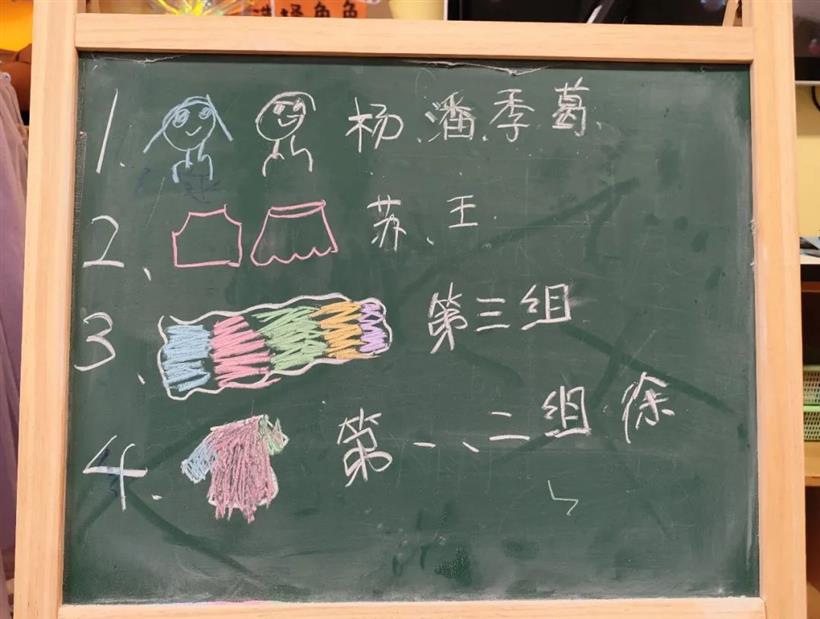 选择角色
1. 杨、潘、季、葛、
2、苏、王
3、第三组
4. 第一、二组 徐